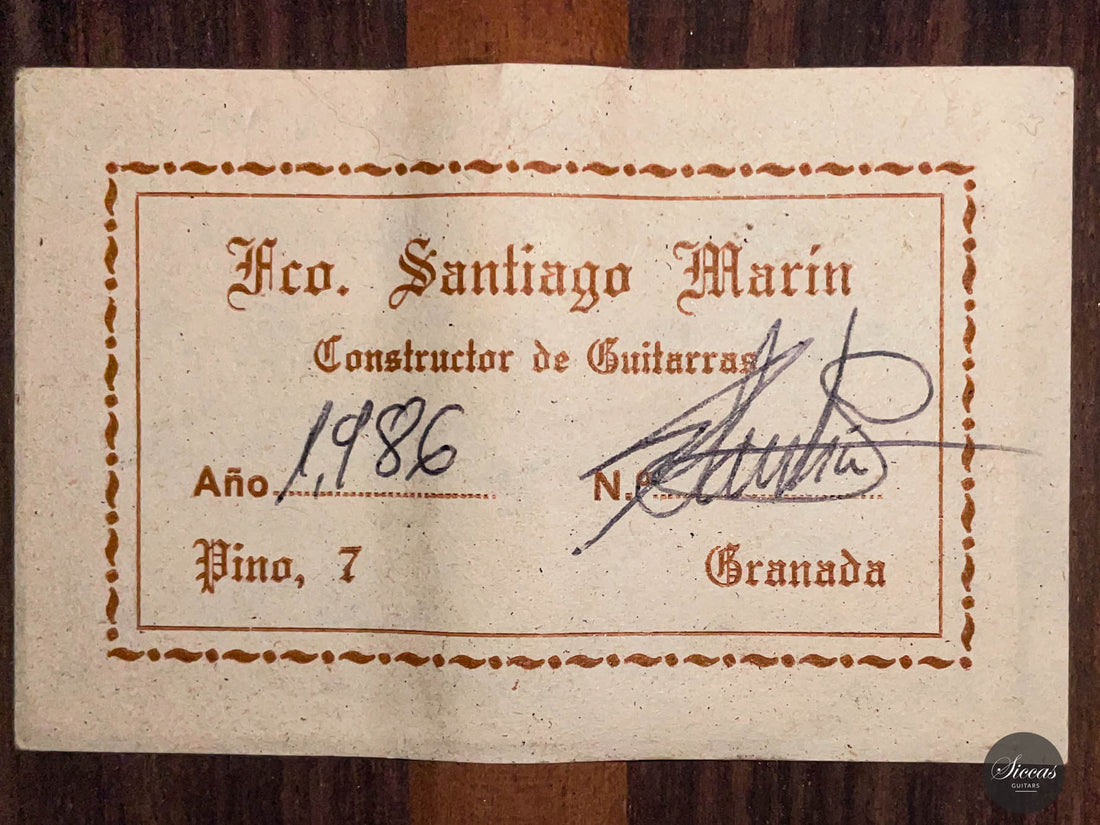 Fco. Santiago Marín
Constructor de Guitarras
Año 1,986 N.º
Pino, 7 Granada
Siccas
GUITARS